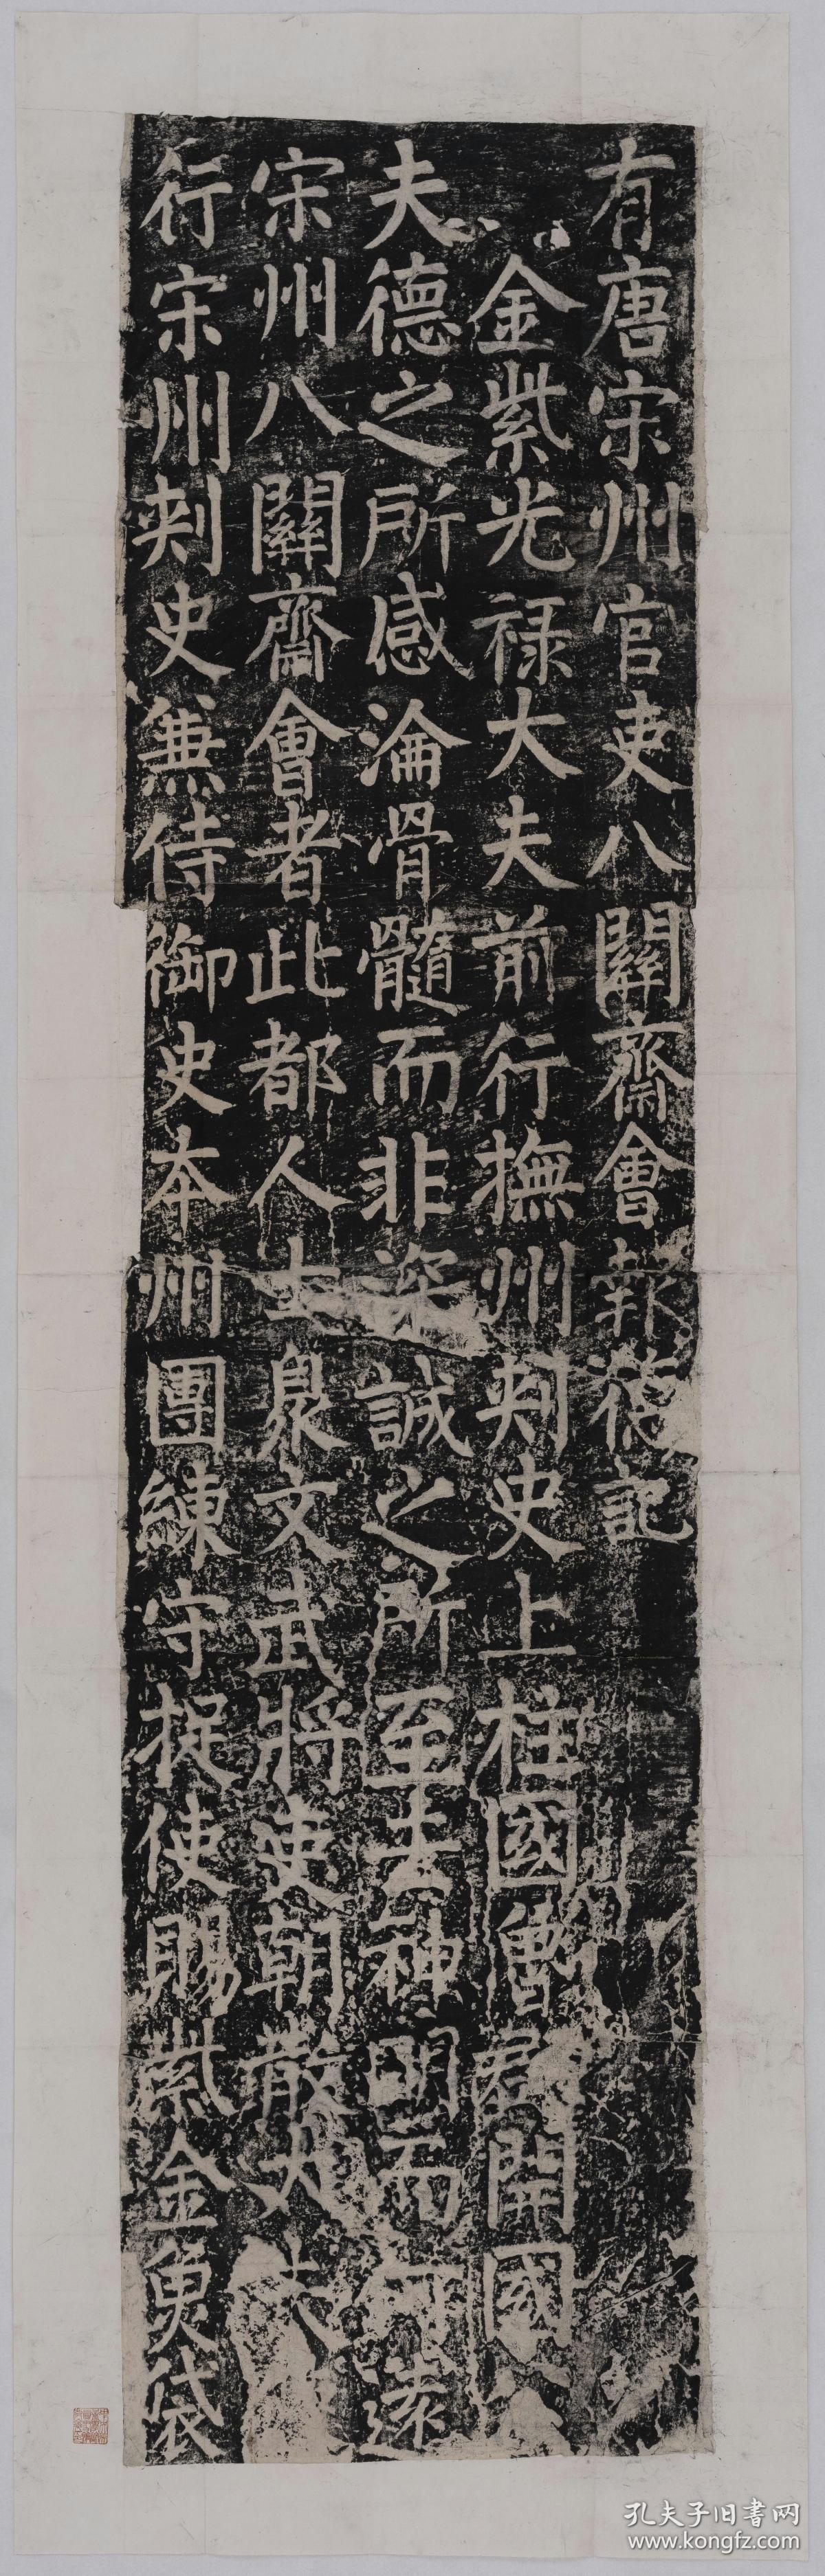 有唐宋州官吏八關齋會報德記
金紫光禄大夫前行撫州刺史上柱國魯郡開國
夫德之所感淪骨髓而非深誠之所至去神明而何遠
宋州八關齋會者此都人士衆文武將吏朝散大夫
行宋州刺史兼侍御史本州團練守捉使賜紫金魚袋
孔夫子旧書网
www.kongfz.com